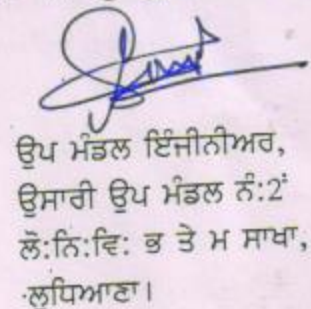 ਉਪ ਮੰਡਲ ਇੰਜੀਨੀਅਰ,
ਉਸਾਰੀ ਉਪ ਮੰਡਲ ਨੰ:2
ਲੋ:ਨਿ:ਵਿ: ਭ ਤੇ ਮ ਸਾਖਾ,
ਲੁਧਿਆਣਾ।